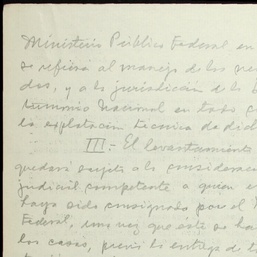 Ministerio Público Federal, en
se refiera al manejo de los
dos, y a la jurisdicción de la
Nacional en todo
la explotación técnica de dich
III.- El levantamiento
quedará sujeto a la considerac
judicial competente a quien
haya sido consignado por el
Federal, una vez que éste se ha
los casos, previa la entrega de